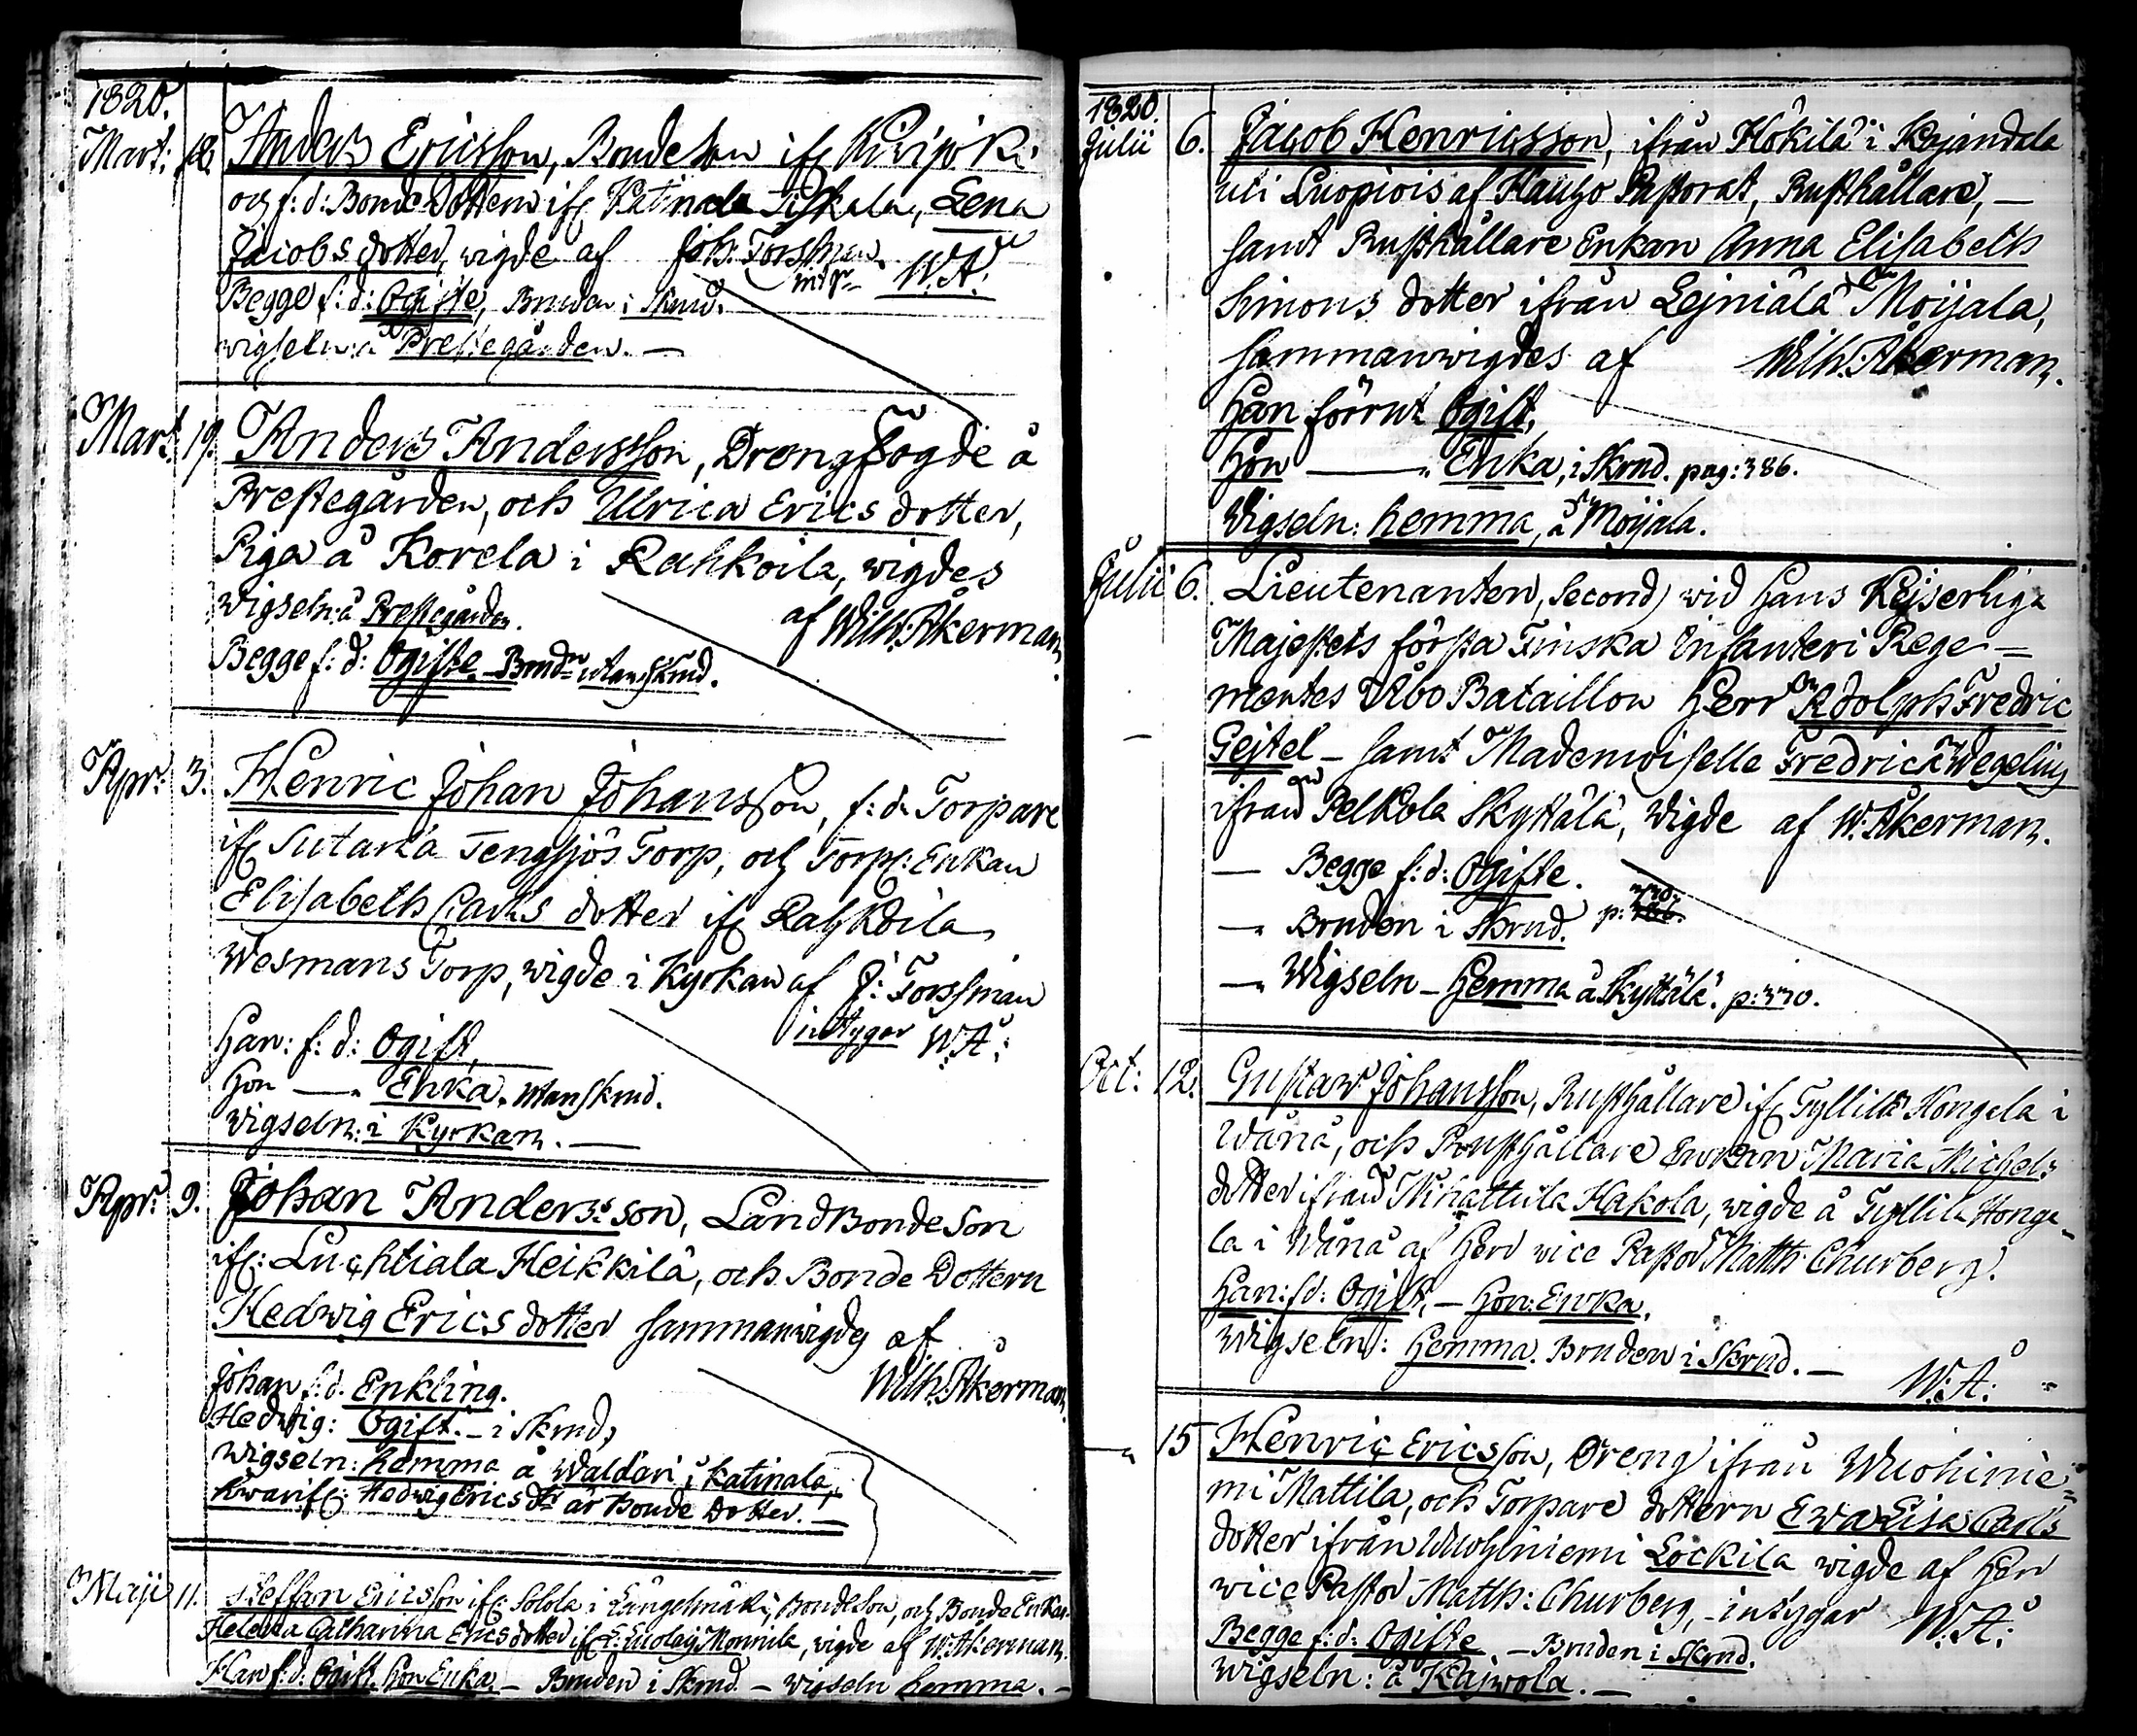 1820.
Mart: 12. Anders Ericsson, Bondeson ifr
och f: d: Bonde Dottern ifr Katinala Piskala, Lena
Jacobs dotter, wigde af Joh: Forsman.
intyg. W.Å:
Begge f: d: Ogifte, Bruden i Skrud.
wigseln: å Prestegården. —
Mart. 19. Anders Andersson, Drengfogde å
Prestegården, och Ulrica Erics dotter,
Piga å Korela i Rahkoila, wigdes
Wigseln: å Prestegården. af Wilh: Åkerman.
Begge f: d: Ogifte. Brudn utan Skrud.
Apr: 3. Henric Johan Johansson, f: d. Torpare
ifr Sutarla Tengsjös Torp, och Torp: Enkan
Elisabeth Carls dotter ifr Rahkoila
Wesmans Torp, wigde i Kyrkan af J: Forssman
intygar W:Å:
Han: f: d: Ogift,
Hon —„— Enka, utan Skrud.
Wigseln: i Kyrkan. —
Apr: 9. Johan Andersson, Landbonde Son
ifr: Luchtiala Heikkilä, och Bonde Dottern
Hedwig Erics dotter sammanwigdes af
Wilh: Åkerman.
Johan f: d. Enkling.
Hedwig: Ogift. – i Skrud,
Wigseln: hemma å Waldari i Katinala,
Hedwig Erics dr är Bonde Dotter. —
Maji 11. Steffan Ericsson ifr: Solola i Längelmäki, Bondeson, och Bonde Enkan
Helena Catharina Ericsdotter ifr: Monnila, wigde af W: Åkerman.
Han f: d: Ogift, Hon Enka, – Bruden i Skrud – wigseln hemma. –
1820.
Julii 6. Jacob Henricsson, ifrån Hokilä i Kajandala
uti Luopiois af Hauho Pastorat, Rusthållare, —
samt Rusthållare Enkan Anna Elisabeth
Simons dotter ifrån Lejniälä Moijala,
sammanwigdes af Wilh: Åkerman.
Han förrut Ogift,
Hon —„— Enka, i Skrud. pag: 386.
Wigseln: hemma, å Moijala.
Julii 6. Lieutenanten, Second) wid Hans Kejserliga
Majestets första Finska Infanteri Rege=
mentes Åbo Bataillon Herr Adolph Fredric
Gejtel – samt Mademoiselle Fredrica Wegelius
ifrån Pelkola Skyttälä, Wigde af W. Åkerman.
— Begge f: d: Ogifte.
— Bruden i Skrud. p:
— Wigseln – Hemma å Skyttälä. p: 370.
Oct: 12. Gustaw Johansson, Rusthållare ifr Tyllilä Hongela i
Wånå, och Rusthållare Enkan Maria Michels
dotter ifrån Mihattula Hakola, wigde å Tyllilä Honge-
la i Wånå af Herr vice Pastor Matth: Churberg.
Han: f d: Ogift, – Hon: Enka,
Wigseln: Hemma. Bruden i Skrud. — W: Å:
—„— 15 Henric Ericsson, Dreng ifrån Wuohinie=
mi Mattila, och Torpare dottern Ewa Lisa Carls
dotter ifrån Wuohiniemi Löckilä wigde af Herr
vice Pastor Matth: Churberg, – intygar W: Å:
Begge f: d: Ogifte – Bruden i Skrud.
Wigseln: å Kajwola. —